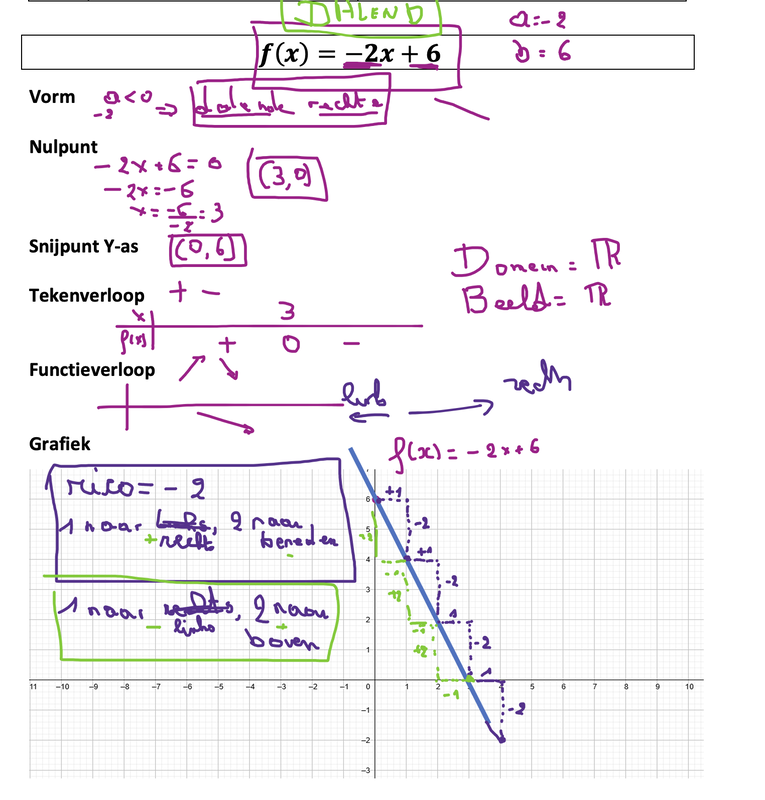 DALEND
f(x) = −2x + 6
a=-2
b = 6
Vorm
a<0 ⇒ dalende rechte
-2
Nulpunt
-2x+6=0
-2x=-6
x=-6/-2=3
(3,0)
Snijpunt Y-as
(0,6)
Domein = ℝ
Beeld = ℝ
Tekenverloop + -
x 3
f(x) + 0 -
Functieverloop
links
rechts
Grafiek
f(x) = -2x+6
rico = -2
1 naar rechts, 2 naar
+ beneden
-
1 naar links, 2 naar
- + boven
+1
-2
+1
-2
1
-2
1
-2
+2
-1
+2
-1
+2
-1
6
5
4
3
2
1
11 −10 −9 −8 −7 −6 −5 −4 −3 −2 −1 0 1 2 3 4 5 6 7 8 9 10
−1
−2
−3